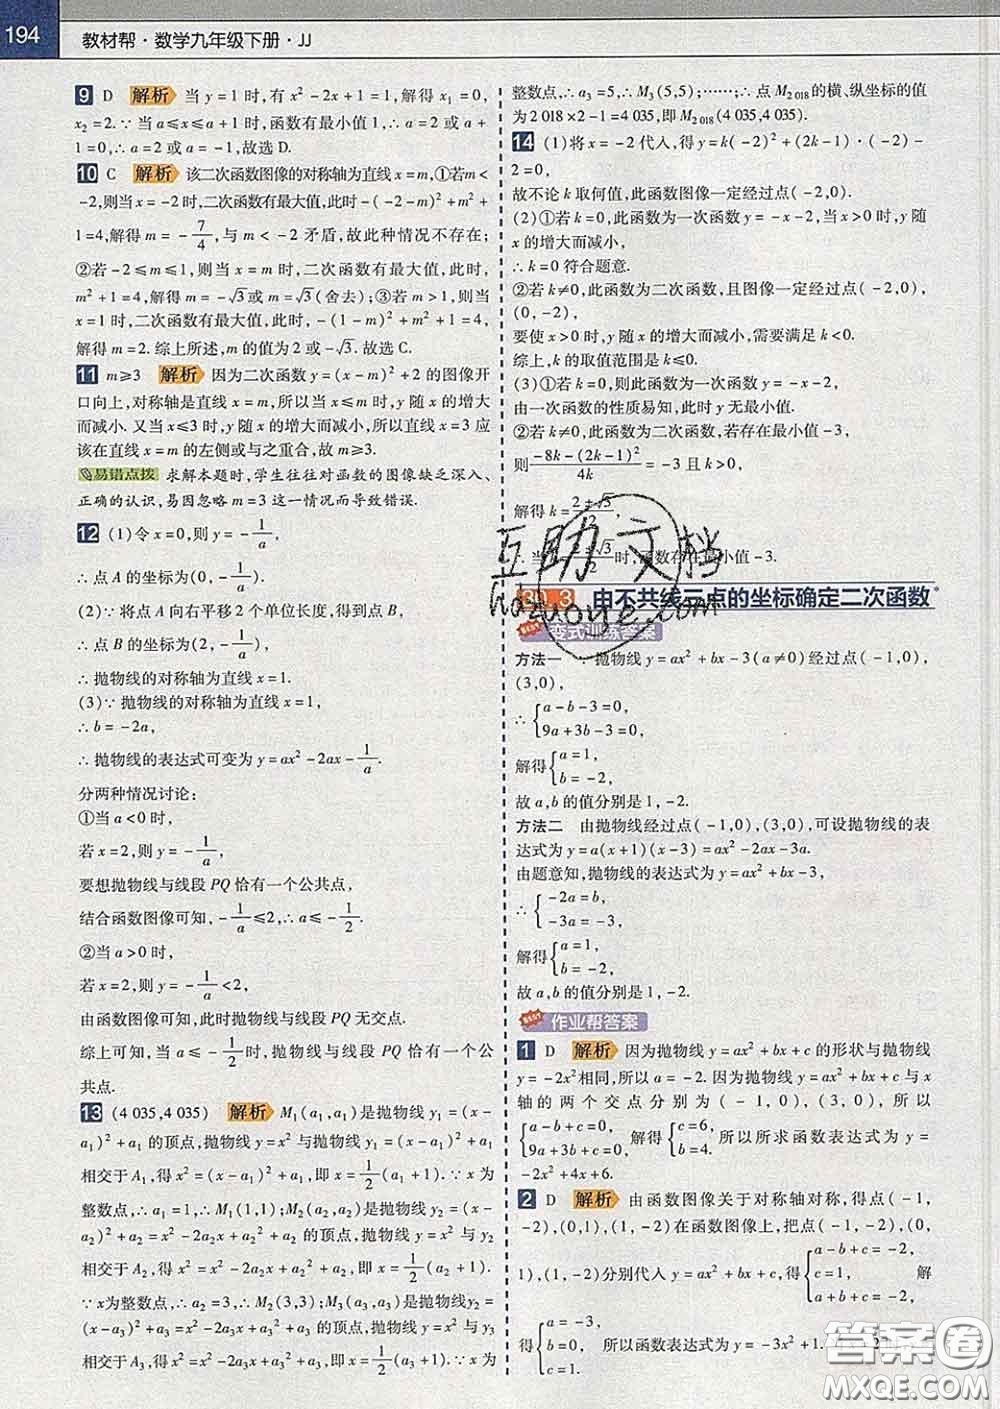 194
教材帮·数学九年级下册·JJ
9 D 解析 当 y=1 时,有 x²-2x+1=1,解得 x₁=0,
x₂=2.∵当 a≤x≤a+1 时,函数有最小值 1,∴a=2 或 a+
1=0,∴a=2 或 a=-1,故选 D.
10 C 解析 该二次函数图像的对称轴为直线 x=m,①若 m<
-2,则当 x=-2 时,二次函数有最大值,此时-(-2-m)²+m²+
1=4,解得 m=-7/4,与 m<-2 矛盾,故此种情况不存在;
②若-2≤m≤1,则当 x=m 时,二次函数有最大值,此时,
m²+1=4,解得 m=-√3或 m=√3(舍去);③若 m>1,则当
x=1 时,二次函数有最大值,此时,-(1-m)²+m²+1=4,
解得 m=2.综上所述,m 的值为 2 或-√3.故选 C.
11 m≥3 解析 因为二次函数 y=(x-m)²+2 的图像开
口向上,对称轴是直线 x=m,所以当 x≤m 时,y 随 x 的增大
而减小.又当 x≤3 时,y 随 x 的增大而减小,所以直线 x=3 应
该在直线 x=m 的左侧或与之重合,故 m≥3.
易错点拨 求解本题时,学生往往对函数的图像缺乏深入、
正确的认识,易因忽略 m=3 这一情况而导致错误.
12 (1)令 x=0,则 y=-1/a,
∴点 A 的坐标为(0,-1/a).
(2)∵将点 A 向右平移 2 个单位长度,得到点 B,
∴点 B 的坐标为(2,-1/a),
∴抛物线的对称轴为直线 x=1.
(3)∵抛物线的对称轴为直线 x=1,
∴b=-2a,
∴抛物线的表达式可变为 y=ax²-2ax-1/a.
分两种情况讨论:
①当 a<0 时,
若 x=2,则 y=-1/a,
要想抛物线与线段 PQ 恰有一个公共点,
结合函数图像可知,-1/a≤2,∴a≤-1/2.
②当 a>0 时,
若 x=2,则 y=-1/a<2,
由函数图像可知,此时抛物线与线段 PQ 无交点.
综上可知,当 a≤-1/2时,抛物线与线段 PQ 恰有一个公
共点.
13 (4 035,4 035) 解析 M₁(a₁,a₁)是抛物线 y₁=(x-
a₁)²+a₁ 的顶点,抛物线 y=x² 与抛物线 y₁=(x-a₁)²+a₁
相交于 A₁,得 x²=(x-a₁)²+a₁,即 x=1/2(a₁+1).∵x 为
整数点,∴a₁=1,∴M₁(1,1);M₂(a₂,a₂)是抛物线 y₂=(x-
a₂)²+a₂=x²-2a₂x+a₂²+a₂ 的顶点,抛物线 y=x² 与 y₂
相交于 A₂,得 x²=x²-2a₂x+a₂²+a₂,即 x=1/2(a₂+1).
∵x为整数点,∴a₂=3,∴M₂(3,3);M₃(a₃,a₃)是抛物线y₂=
(x-a₃)²+a₃=x²-2a₃x+a₃²+a₃ 的顶点,抛物线 y=x² 与 y₃
相交于 A₃,得 x²=x²-2a₃x+a₃²+a₃,即 x=1/2(a₃+1).∵x 为
整数点,∴a₃=5,∴M₃(5,5);……;∴点 M₂₀₁₈的横、纵坐标的值
为 2 018×2-1=4 035,即 M₂₀₁₈(4 035,4 035).
14 (1)将 x=-2 代入,得 y=k(-2)²+(2k-1)·(-2)-
2=0,
故不论 k 取何值,此函数图像一定经过点(-2,0).
(2)①若 k=0,此函数为一次函数 y=-x-2,当 x>0 时,y 随
x 的增大而减小,
∴k=0 符合题意.
②若 k≠0,此函数为二次函数,且图像一定经过点(-2,0),
(0,-2),
要使 x>0 时,y 随 x 的增大而减小,需要满足 k<0.
综上,k 的取值范围是 k≤0.
(3)①若 k=0,则此函数为一次函数 y=-x-2,
由一次函数的性质易知,此时 y 无最小值.
②若 k≠0,此函数为二次函数,若函数存在最小值-3,
则(-8k-(2k-1)²)/4k=-3 且 k>0,
解得 k=(2±√3)/2,
∴当 k=(2±√3)/2时,函数存在最小值-3.
30.3 由不共线三点的坐标确定二次函数*
变式训练答案
方法一 ∵抛物线 y=ax²+bx-3(a≠0)经过点(-1,0),
(3,0),
∴{a-b-3=0,
9a+3b-3=0,
解得{a=1,
b=-2,
故 a,b 的值分别是 1,-2.
方法二 由抛物线经过点(-1,0),(3,0),可设抛物线的表
达式为 y=a(x+1)(x-3)=ax²-2ax-3a.
由题意知,抛物线的表达式为 y=ax²+bx-3,
∴{-2a=b,
-3a=-3,
解得{a=1,
b=-2,
故 a,b 的值分别是 1,-2.
作业帮答案
1 D 解析 因为抛物线 y=ax²+bx+c 的形状与抛物线
y=-2x²相同,所以 a=-2.因为抛物线 y=ax²+bx+c 与 x
轴的两个交点分别为(-1,0),(3,0),所以
{0=-2-b+c, 解得{c=6, 所以所求函数表达式为 y=
9a+3b+c=0, b=4.
-2x²+4x+6.
2 D 解析 由函数图像关于对称轴对称,得点(-1,
-2),(0,1),(1,-2)在函数图像上,把点(-1,-2),(0,
1),(1,-2)分别代入 y=ax²+bx+c,得{a-b+c=-2,
c=1,
a+b+c=-2,
解
得{a=-3,
b=0,
c=1.
所以函数表达式为 y=-3x²+1.
互助文档
hdzuoye.com
答案圈
MXQE.COM